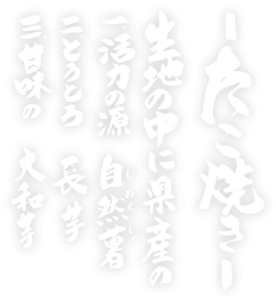 ーたこ焼きー
生地の中に県産の
一、活力の源 自然薯
じねんじょ
二、とろしろ 長芋
三、甘味の 大和芋